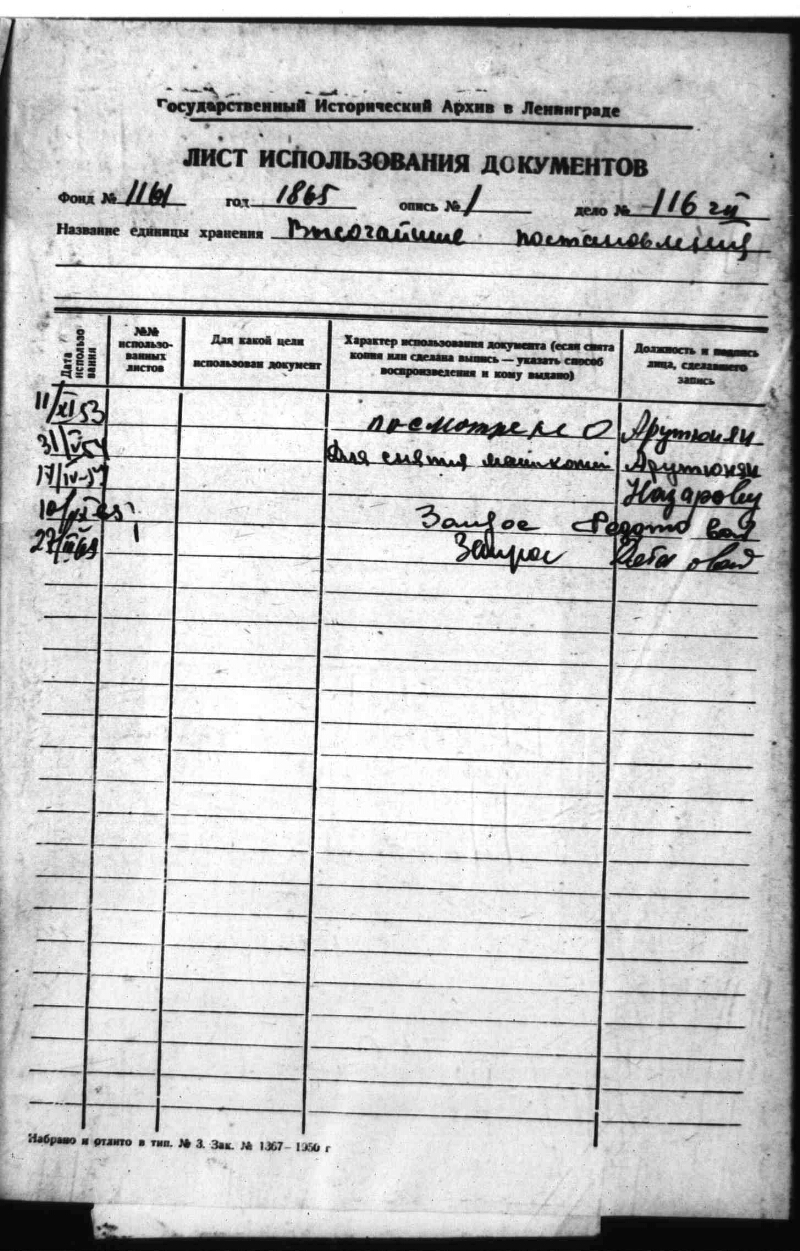 Государственный Исторический Архив в Ленинграде
ЛИСТ ИСПОЛЬЗОВАНИЯ ДОКУМЕНТОВ
Фонд № 1161 год 1865 опись № 1 дело № 116
Название единицы хранения Высочайшие постановления
Дата использования
№№ использованных листов
Для какой цели использован документ
Характер использования документа (если снята копия или сделана выпись — указать способ воспроизведения и кому выдано)
Должность и подпись лица, сделавшего запись
11/XI 53 посмотрено Арутюнян
31/V 54 Для снятия Арутюнян
17/IV-57 Назарову
Набрано и отлито в тип. № 3. Зак. № 1367–1950 г